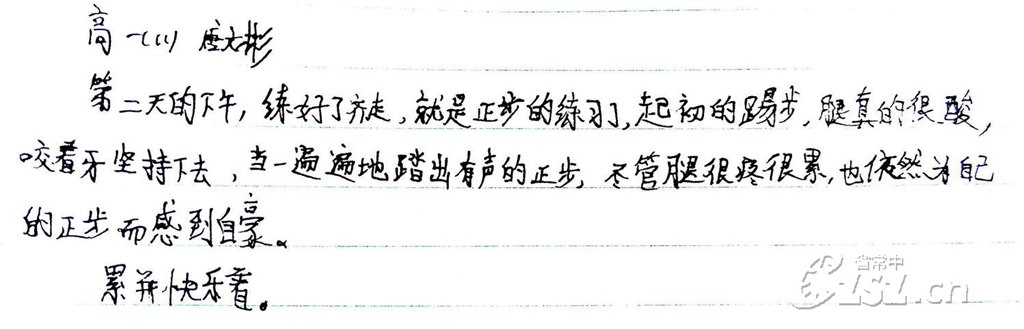 高一(1) 唐文彬
第二天的下午,练好了齐走,就是正步的练习了,起初的踢步,腿真的很酸,
咬着牙坚持下去,当一遍遍地踏出有声的正步,尽管腿很疼很累,也依然为自己
的正步而感到自豪。
累并快乐着。
省常中
CZSZ.cn